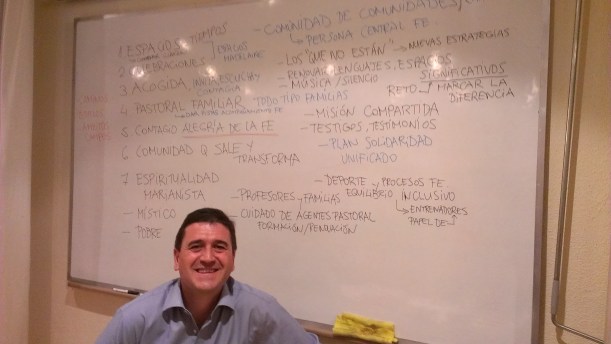 1 ESPACIOS, TIEMPOS
2 CELEBRACIONES
3 ACOGIDA,
4 PASTORAL FAMILIAR, TODO TIPO FAMILIAS
5 CONTAGIO ALEGRÍA DE LA FE
6 COMUNIDAD Q SALE Y
TRANSFORMA
7 ESPIRITUALIDAD
MARIANISTA
- MÍSTICO
- POBRE
- COMUNIDAD DE COMUNIDADES
PERSONA CENTRAL FE.
- LOS "QUE NO ESTÁN" → NUEVAS ESTRATEGIAS
- RENOVAR LENGUAJES, ESPACIOS
- MÚSICA/SILENCIO
SIGNIFICATIVOS
RETO → MARCAR LA
DIFERENCIA
- MISIÓN COMPARTIDA
- TESTIGOS, TESTIMONIOS
- PLAN SOLIDARIDAD
UNIFICADO
- DEPORTE Y PROCESOS FE
EQUILIBRIO INCLUSIVO
→ ENTRENADORES
PAPEL DE
- PROFESORES Y FAMILIAS
- CUIDADO DE AGENTES PASTORAL
FORMACIÓN/